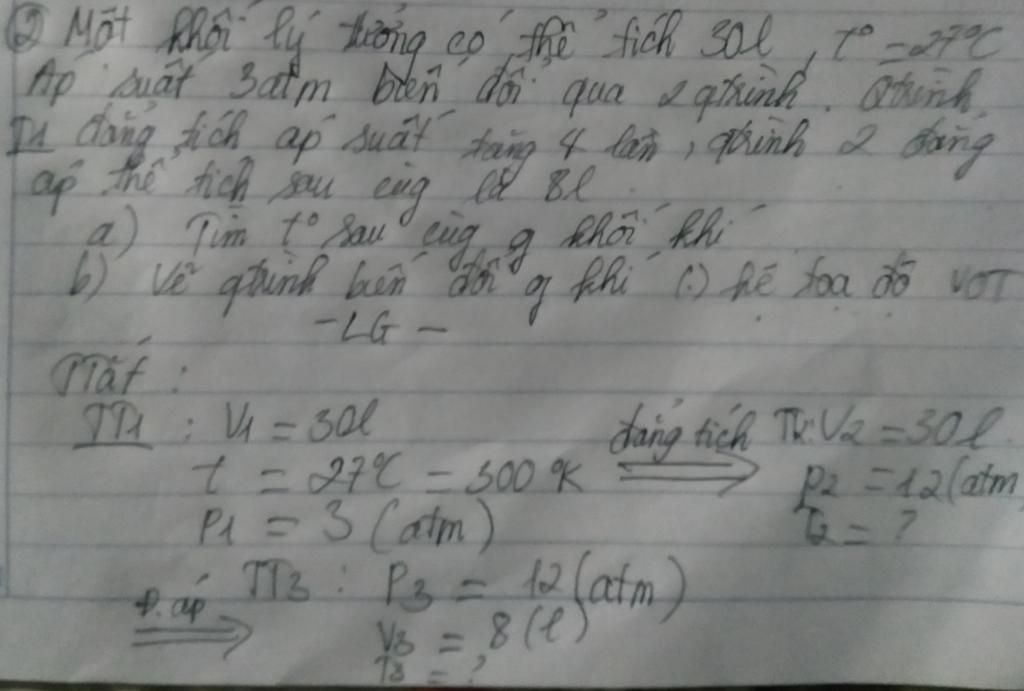 ② Một khối lý tưởng có thể tích 30l, t° = 27°C
Áp suất 3atm biến đổi qua 2 qtrình. Qtrình
T1 đẳng tích áp suất tăng 4 lần, qtrình 2 đẳng
áp thể tích sau cùg là 8l.
a) Tìm t° sau cùg g khối khí
b) Vẽ qtrình biến đổi g khí (.) hệ tọa độ VOT
- LG -
TTắt :
TT1 : V1 = 30l đẳng tích T2: V2 = 30l
t = 27°C = 300°K ⟹ P2 = 12 (atm
P1 = 3 (atm) T2 = ?
Đ. áp ⟹ TT3 : P3 = 12 (atm)
V3 = 8 (l)
T3 = ?